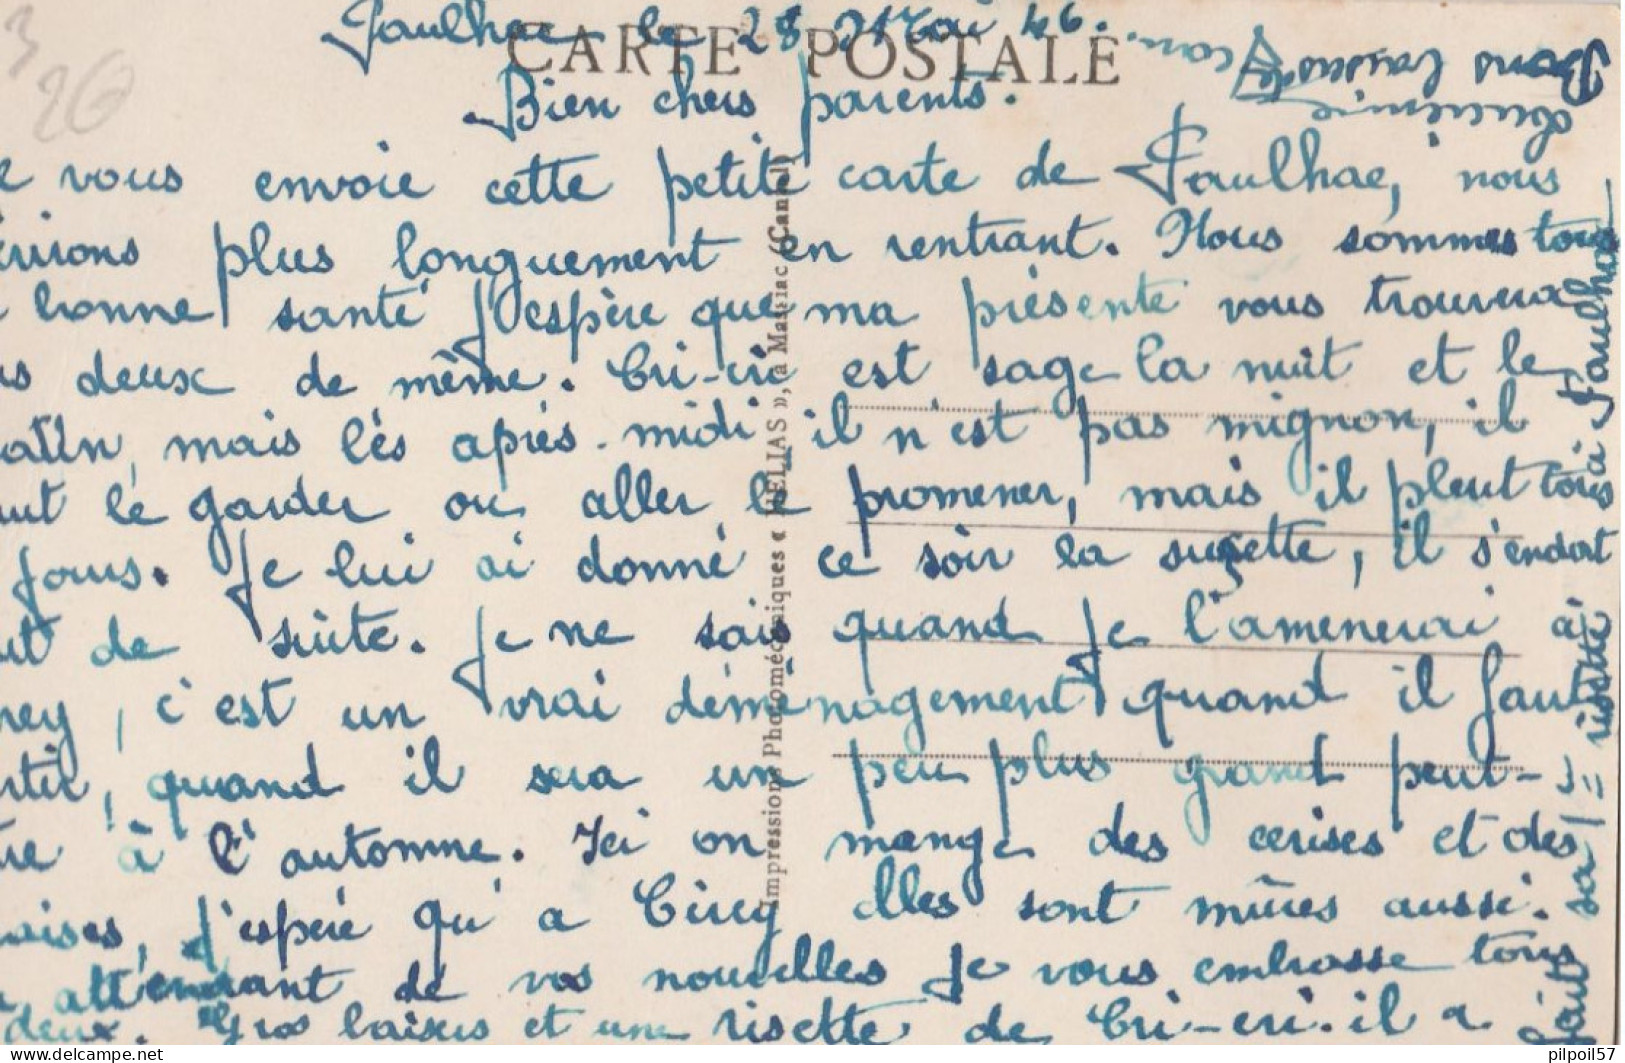 Paulhac le 28 Mai 46.
CARTE POSTALE
Bien chers parents.
e vous envoie cette petite carte de Paulhac, nous
crirons plus longuement en rentrant. Nous sommes tous
bonne santé j'espère que ma présente vous trouvera
us deux de même. Cri-cri est sage la nuit et le
atin, mais lés aprés-midi il n'est pas mignon, il
aut le garder ou aller le promener, mais il pleut tous
jours. Je lui ai donné ce soir la sucette, il s'endort
ut de suite. Je ne sais quand je l'amenerai à
rey, c'est un vrai déménagement quand il faut
rtir, quand il sera un peu plus grand peut-
tre à l'automne. Ici on mange des cerises et des
raises, j'espére qu'a Cirey elles sont mûres aussi.
n attendant de vos nouvelles je vous embrasse tous
deux. Gros baisers et une risette de Cri-cri. il a
fait sa 1= risette
à Paulhac
Bons baisers de
Lucienne
Impressions Photomécaniques « HELIAS », à Massiac (Cantal)
3
20
pilpoil57